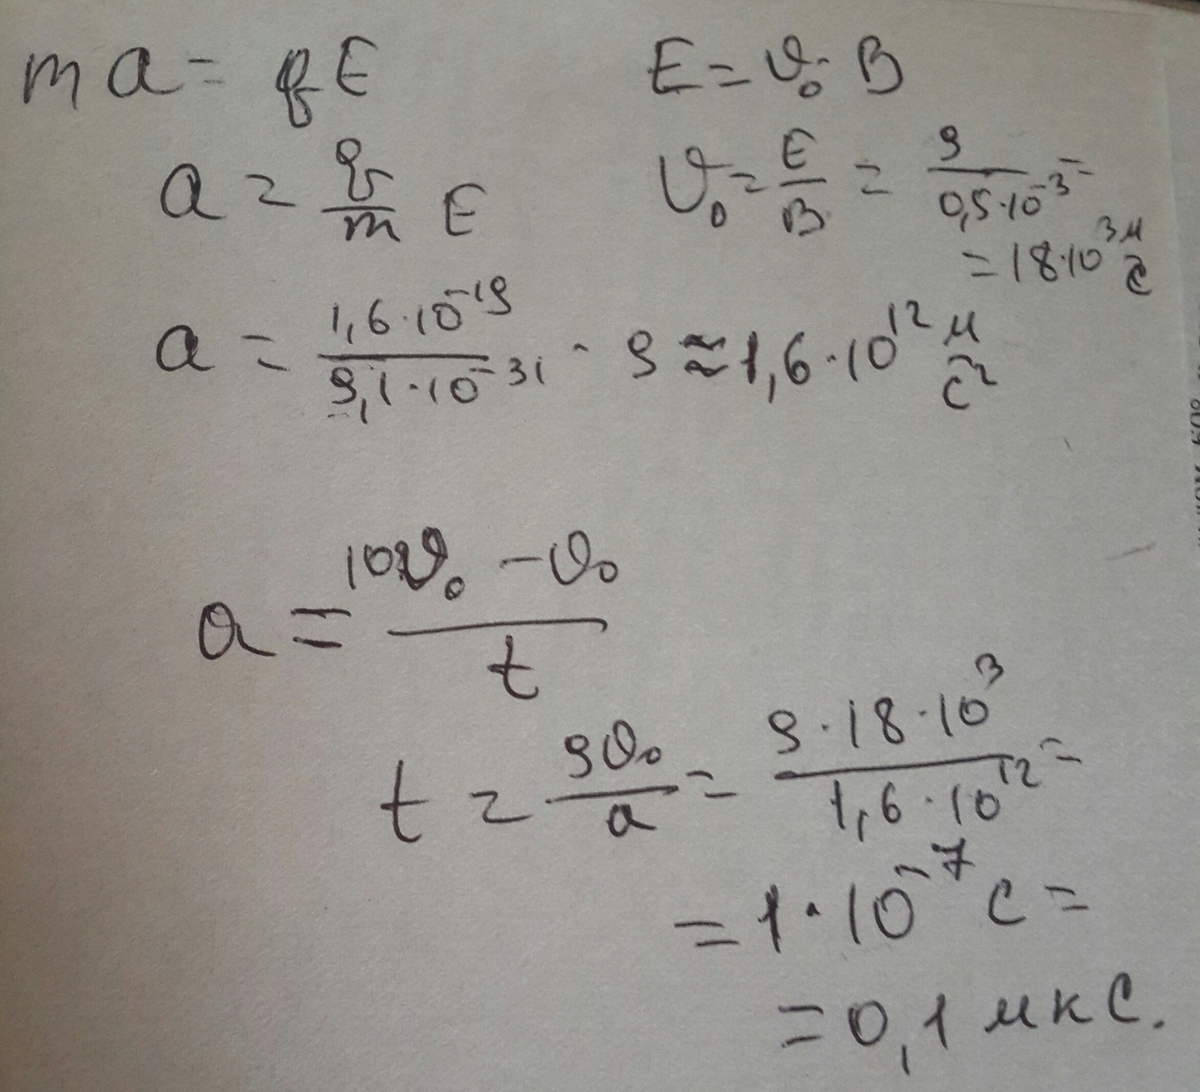 ma = qE
E = υ₀B
a = q/m E
υ₀ = E/B = 9/0,5·10⁻³ =
= 18·10³ м/с
a = 1,6·10⁻¹⁹/9,1·10⁻³¹ · 9 ≈ 1,6·10¹² м/с²
a = 10υ₀ - υ₀/t
t = 9υ₀/a = 9·18·10³/1,6·10¹² =
= 1·10⁻⁷ с =
= 0,1 мкс.